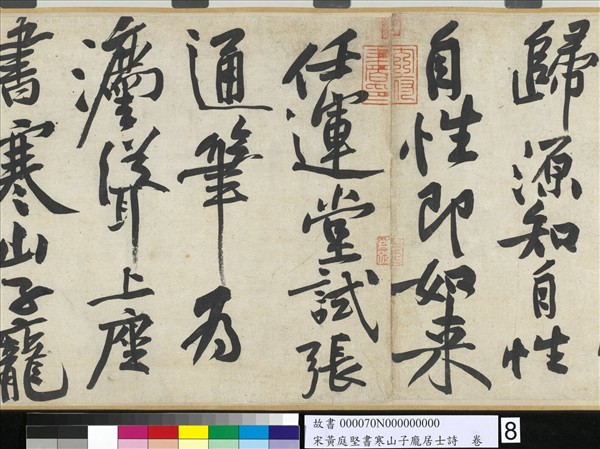 歸源知自性
自性即如来
任運堂試張
通筆為
灋聳上座
書寒山子龐
故書 000070N000000000
宋黃庭堅書寒山子龐居士詩 卷
8